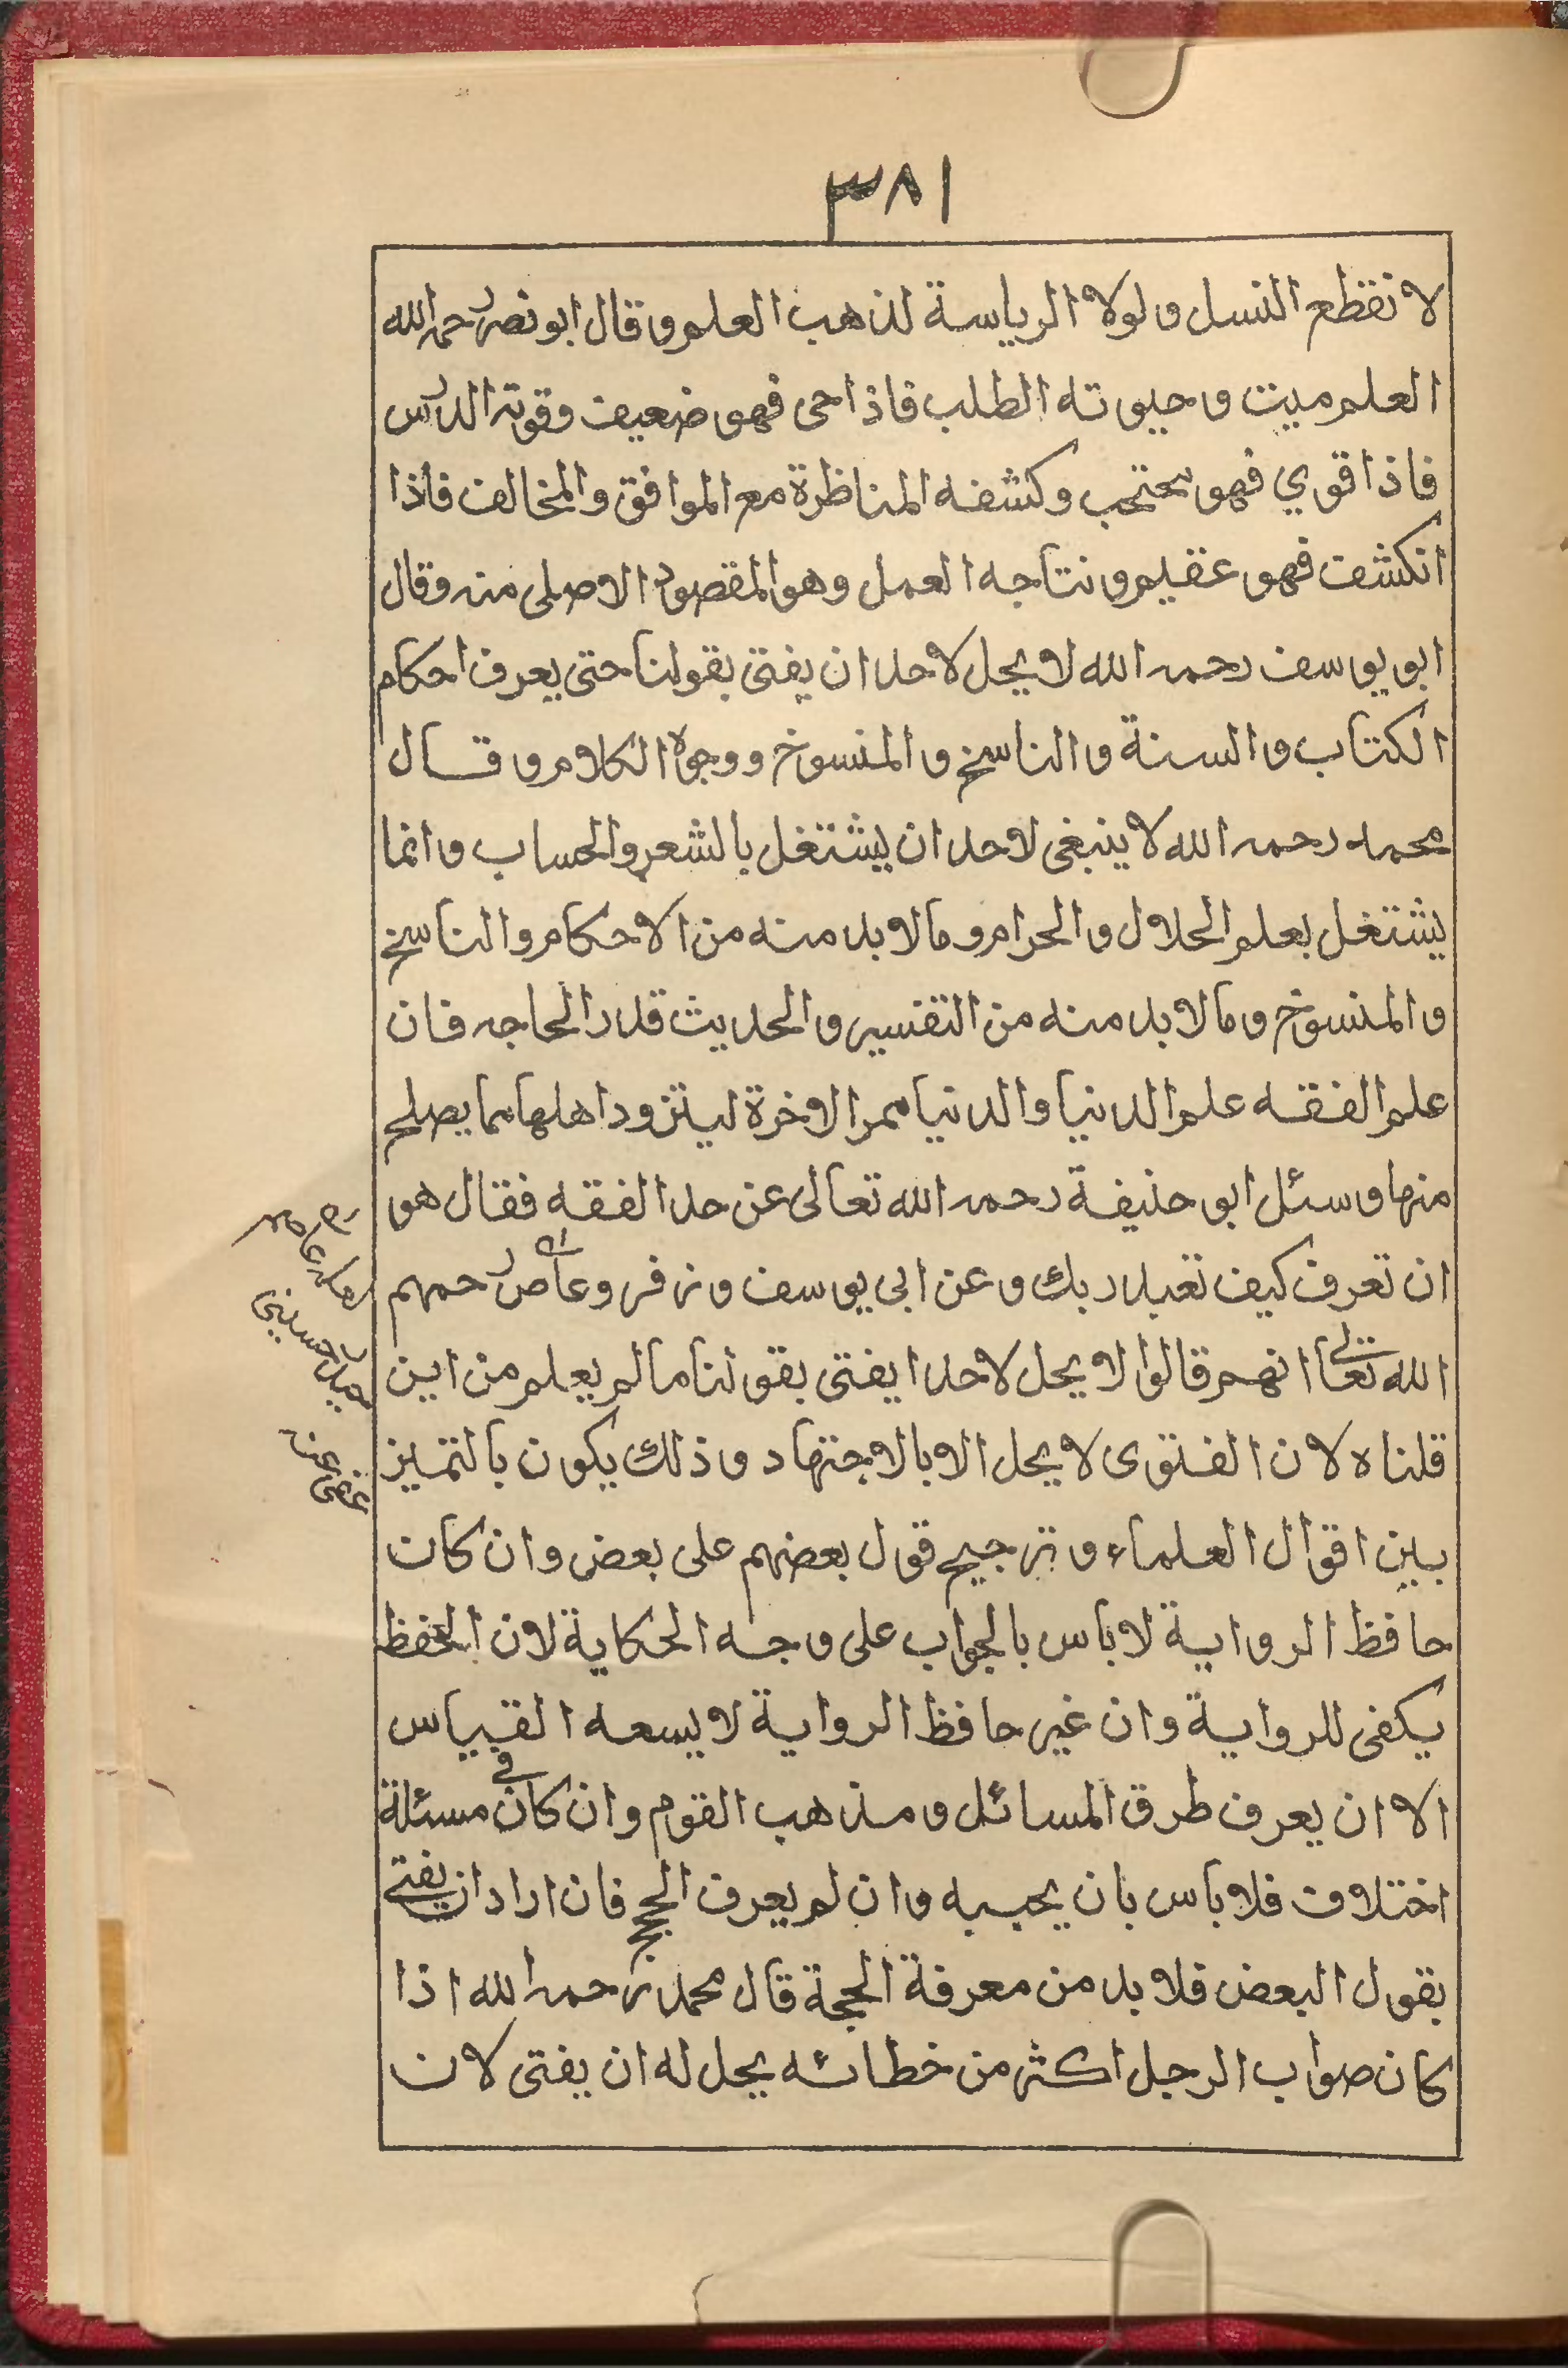 ٣٨١
لانقطع النسل ولولا الرياسة لذهب العلم وقال ابو نصر رحمه الله
العلم ميت وحيوته الطلب فاذا حى فهو ضعيف وقوته الدرس
فاذا قوي فهو محتجب وكشفه المناظرة مع الموافق والمخالف فاذا
انكشف فهو عقيم ونتاجه العمل وهو المقصود الاصلى منه وقال
ابو يوسف رحمه الله لا يحل لاحد ان يفتى بقولنا حتى يعرف احكام
الكتاب والسنة والناسخ والمنسوخ ووجوه الكلام وقال
محمد رحمه الله لا ينبغى لاحد ان يشتغل بالشعر والحساب وانما
يشتغل بعلم الحلال والحرام وما لابد منه من الاحكام والناسخ
والمنسوخ وما لابد منه من التفسير والحديث قدر الحاجه فان
علم الفقه علم الدنيا والدنيا ممر الاخرة ليتزود اهلها مما يصلح
منها وسئل ابو حنيفة رحمه الله تعالى عن حد الفقه فقال هو
ان تعرف كيف تعبد ربك وعن ابى يوسف وزفر وعاص رحمهم
الله تعالى انهم قالوا لا يحل لاحد ا يفتى بقولنا ما لم يعلم من اين
قلناه لان الفتوى لا يحل الا بالاجتهاد وذلك يكون بالتميز
بين اقوال العلماء وترجيح قول بعضهم على بعض وان كان
حافظ الرواية لا باس بالجواب على وجه الحكاية لان الحفظ
يكفى للرواية وان غير حافظ الرواية لا يسعه القياس
الا ان يعرف طرق المسائل ومذهب القوم وان كان فى مسئلة
اختلاف فلا باس بان يجيبه وان لم يعرف الحجج فان اراد ان يفتى
بقول البعض فلا بد من معرفة الحجة قال محمد رحمه الله اذا
كان صواب الرجل اكثر من خطائه يحل له ان يفتى لان